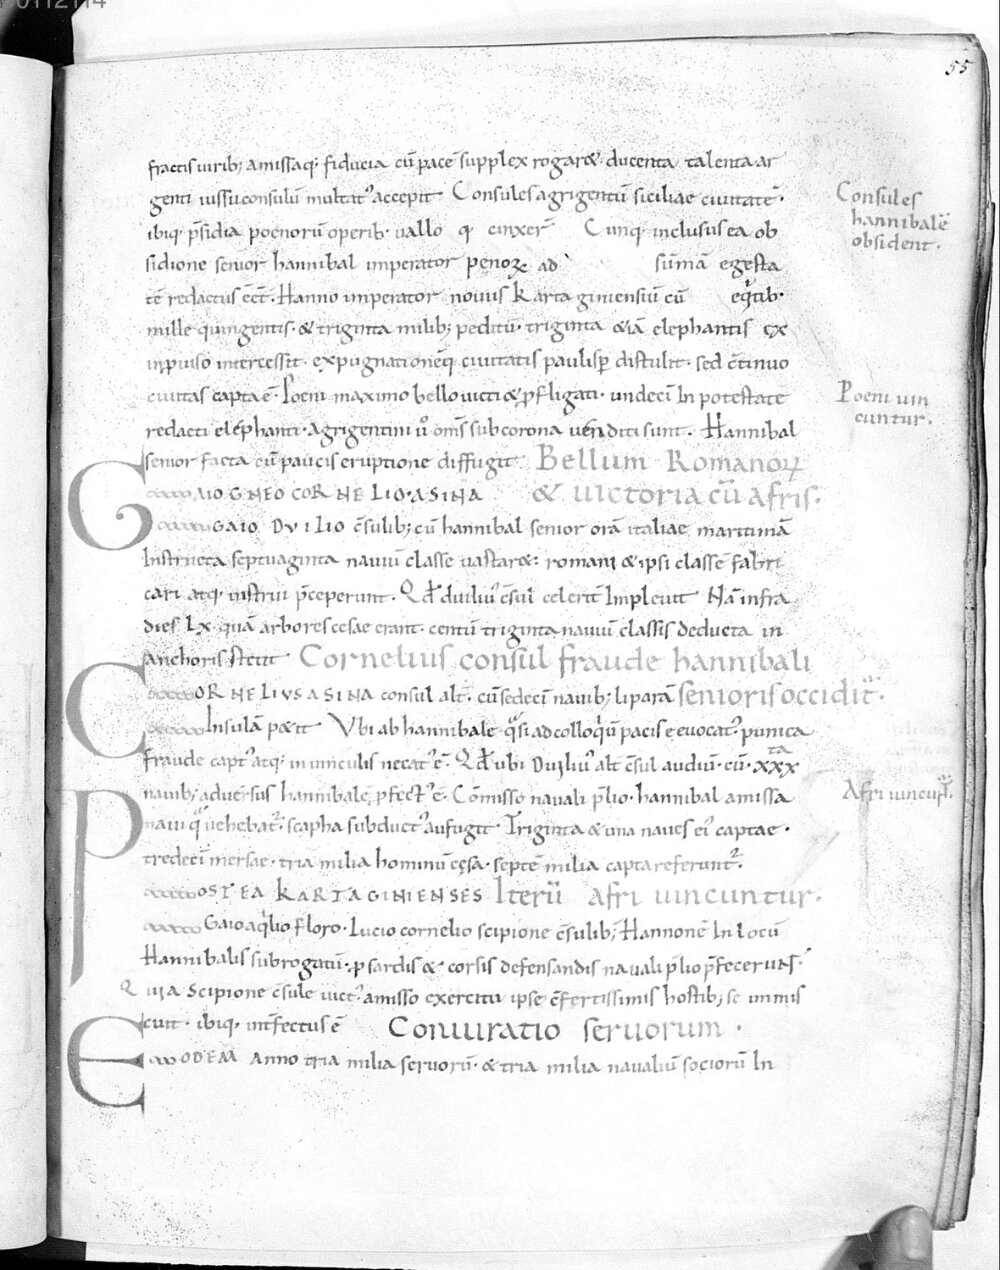 0112114
55
fractis uirib; amissaq; fiducia cū pacē supplex rogar& ducenta talenta ar
genti iussu consulū multat᾽ accepit Consules agrigentū siciliae ciuitatē·
ibiq; p̄sidia poenorū operib· uallo q; cinxer̄ Cunq; inclusus ea ob
sidione senior hannibal imperator penoꝝ ad sūmā egesta
tē redactus eēt· Hanno imperator nouus Kartaginiensiū cū eqͥtib·
mille quingentis· & triginta milib; peditū· triginta &iā elephantis ex
inprouiso intercessit· expugnationēq; ciuitatis paulisꝑ distulit· sed c̄tinuo
ciuitas capta ē· Poeni maximo bello uicti & ꝓfligati· undeci In potestatē
redacti elephanti· Agrigentini u͛o om̄s sub corona uenditi sunt· Hannibal
senior facta cū paucis eruptione diffugit Bellum Romanoꝝ
GAIO GNEO CORNELIO·ASINA & uictoria cū afris·
GAIO DVILIO c̄sulib; cū hannibal senior orā italiae maritimā
Instructa septuaginta nauiū classe uastar&: romani & ipsi classē fabri
cari atq; instrui p̄ceperunt· Qd̄ duiliu᾽ c̄sul celerit̄ Impleuit Nā infra
dies Lx quā arbores cesae erant· centū triginta nauiū classis deducta in
anchoris stetit Cornelius consul fraude hannibali
CORNELIVS ASINA consul alt̄· cū sedecī nauib; liparā senioris occidit᾽·
Insulā petit Vbi ab hannibale qͣsi ad colloqͥū pacis euocat᾽· punica
fraude capt᾽ atq; in uinculis necat᾽ ē· Qd̄ ubi Duiliu᾽ alt̄ c̄sul audiuit· cū· xxx ta
nauib; aduersus hannibalē ꝓfect᾽ ē· Cōmisso nauali p̄lio· hannibal amissa
naui qͣ uehebat᾽· scapha subduct᾽ aufugit· Triginta & una naues ei᾽ captae·
tredecī mersae· tria milia hominū cęsa· septē milia capta referunt᾽·
POSTEA KARTAGINIENSES Iterū afri uincuntur·
Gaio aqͥlio floro· Lucio cornelio scipione c̄sulib; Hannonē In locū
Hannibalis subrogatū· ꝓ sardis & corsis defensandis nauali p̄lio p̄fecerunt·
Quia Scipione c̄sule uict᾽ amisso exercitu ipse c̄fertissimis hostib; se inmis
cuit· ibiq; int̄fectus ē Coniuratio seruorum·
EODEM Anno tria milia seruorū· & tria milia naualiū sociorū In
Consules
hannibalē
obsident·
Poeni uin
cuntur·
Afri uincūt᾽·